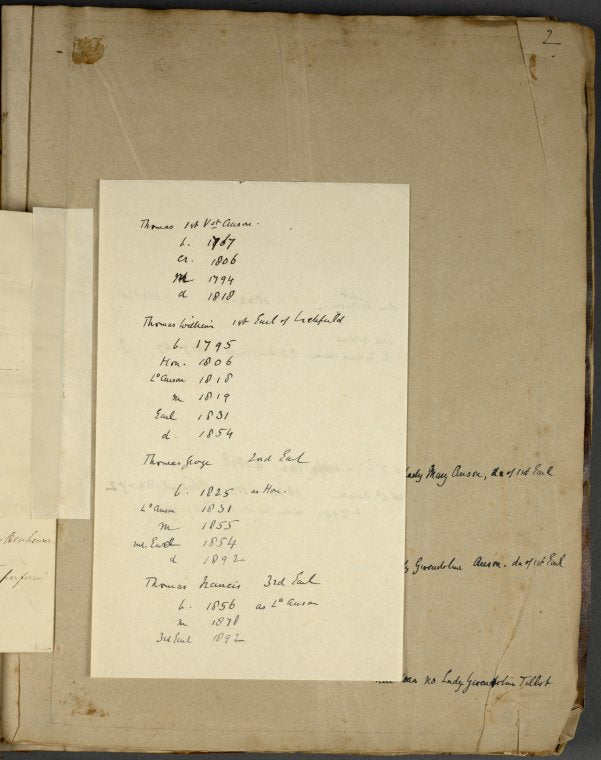 2
Thomas 1st Vst Anson.
b. 1767
cr. 1806
m 1794
d 1818
Thomas William 1st Earl of Lichfield
b. 1795
Hon. 1806
Ld Anson 1818
m 1819
Earl 1831
d. 1854
Thomas George 2nd Earl
b. 1825 as Hon.
Ld Anson 1831
m 1855
Earl 1854
d 1892
Thomas Francis 3rd Earl
b. 1856 as Ld Anson
m 1878
3rd Earl 1892
Lady Mary Anson, da of 1st Earl
Gwendoline Anson. da of 1st Earl
was no Lady Gwendoline Talbot